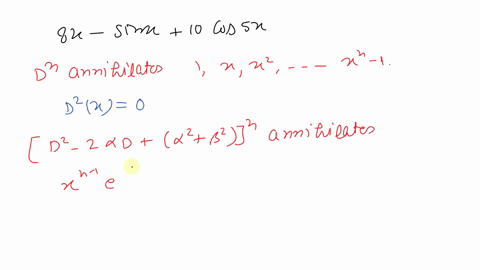 8x − sinx + 10 cos 5x
Dⁿ annihilates 1, x, x², --- xⁿ⁻¹.
D²(x) = 0
[D² − 2αD + (α² + β²)]ⁿ annihilates
xⁿ⁻¹ e